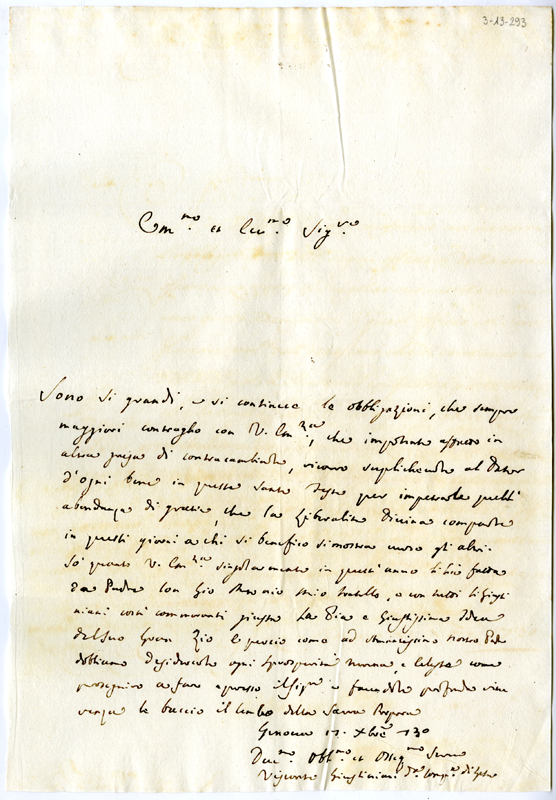 3-13-293
Em.mo et Re.mo Sig.re
Sono si grandi, e si continue le obbligazioni, che sempre
maggiori contraggo con V. Em.za, che impotente affatto in
altra guisa di contracambiarle, ricorro suplichevole al Dator
d'ogni bene in queste Sante Feste per impetrarle quell'
abondanza di grazie, che la Liberalità Divina comparte
in questi giorni a chi si benefico si mostra verso gli altri.
So quanto V. Em.za singolarmente in quest'anno l'hà fatta
da Padre con Gio mio fratello, e con tutti li Giusti
niani costì commoranti giusta la Pia e Giustissima Idea
del suo Gran Zio le perciò come ad Amantissimo nostro Padre
dobbiamo desiderarle ogni prosperità humana, e celeste come
proseguirò a fare appresso il Sig.re e facendole profonda rive
renza le baccio il lembo della Sacra Porpora
Genova Xbre 1730
Dev.mo Obb.mo et Osseq.mo Servo
Visconte Giustiniani